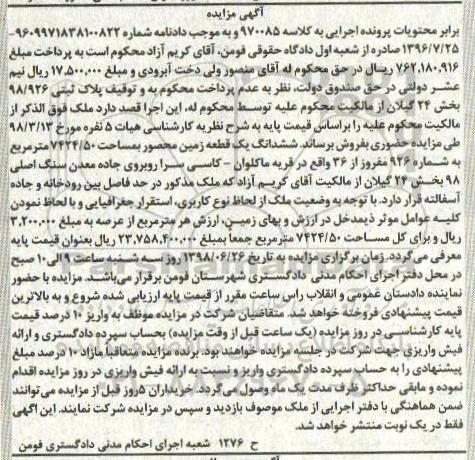 آگهی مزایده
برابر محتویات پرونده اجرایی به کلاسه ۹۷۰۰۸۵ و به موجب دادنامه شماره ۹۶۰۹۹۷۱۸۳۸۱۰۰۸۲۲-
۱۳۹۶/۷/۲۵ صادره از شعبه اول دادگاه حقوقی فومن، آقای کریم آزاد محکوم است به پرداخت مبلغ
۷۶۲.۱۸۰.۹۱۶ ریال در حق محکوم له آقای منصور ولی دخت آبرودی و مبلغ ۱۷.۵۰۰.۰۰۰ ریال نیم
عشر دولتی در حق صندوق دولت، نظر به عدم پرداخت محکوم به و توقیف پلاک ثبتی ۹۸/۹۲۶
بخش ۲۴ گیلان از مالکیت محکوم علیه توسط محکوم له، این اجرا قصد دارد ملک فوق الذکر از
مالکیت محکوم علیه را براساس قیمت پایه به شرح نظریه کارشناسی هیات ۵ نفره مورخ ۹۸/۳/۱۳
طی مزایده حضوری بفروش برساند. ششدانگ یک قطعه زمین محصور بمساحت ۷۴۲۴/۵۰ مترمربع
به شماره ۹۲۶ مفروز از ۳۶ واقع در قریه ماکلوان - کاسی سرا روبروی جاده معدن سنگ اصلی
۹۸ بخش ۲۴ گیلان از مالکیت آقای کریم آزاد که ملک مذکور در حد فاصل بین رودخانه و جاده
آسفالته قرار دارد. با توجه به وضعیت ملک از لحاظ نوع کاربری، استقرار جغرافیایی و با لحاظ نمودن
کلیه عوامل موثر ذیمدخل در ارزش و بهای زمین، ارزش هر مترمربع از عرصه به مبلغ ۳.۲۰۰.۰۰۰
ریال و برای کل مساحت ۷۴۲۴/۵۰ مترمربع جمعا بمبلغ ۲۳.۷۵۸.۴۰۰.۰۰۰ ریال بعنوان قیمت پایه
معرفی می‌گردد. زمان برگزاری مزایده به تاریخ ۱۳۹۸/۰۶/۲۶ روز سه شنبه ساعت ۹ الی ۱۰ صبح
در محل دفتر اجرای احکام مدنی دادگستری شهرستان فومن برقرار می‌باشد. مزایده با حضور
نماینده دادستان عمومی و انقلاب راس ساعت مقرر از قیمت پایه ارزیابی شده شروع و به بالاترین
قیمت پیشنهادی فروخته خواهد شد. متقاضیان شرکت در مزایده موظف به واریز ۱۰ درصد قیمت
پایه کارشناسی در روز مزایده (یک ساعت قبل از وقت مزایده) بحساب سپرده دادگستری و ارائه
فیش واریزی جهت شرکت در جلسه مزایده خواهند بود. برنده مزایده متعاقبا مازاد ۱۰ درصد مبلغ
پیشنهادی را به حساب سپرده دادگستری واریز و نسبت به ارائه فیش واریزی در روز مزایده اقدام
نموده و مابقی حداکثر ظرف مدت یک ماه وصول می‌گردد. خریداران ۵ روز قبل از مزایده می‌توانند
ضمن هماهنگی با دفتر اجرایی از ملک موصوف بازدید و سپس در مزایده شرکت نمایند. این آگهی
فقط در یک نوبت منتشر خواهد شد.
ح ۱۲۷۶ شعبه اجرای احکام مدنی دادگستری فومن